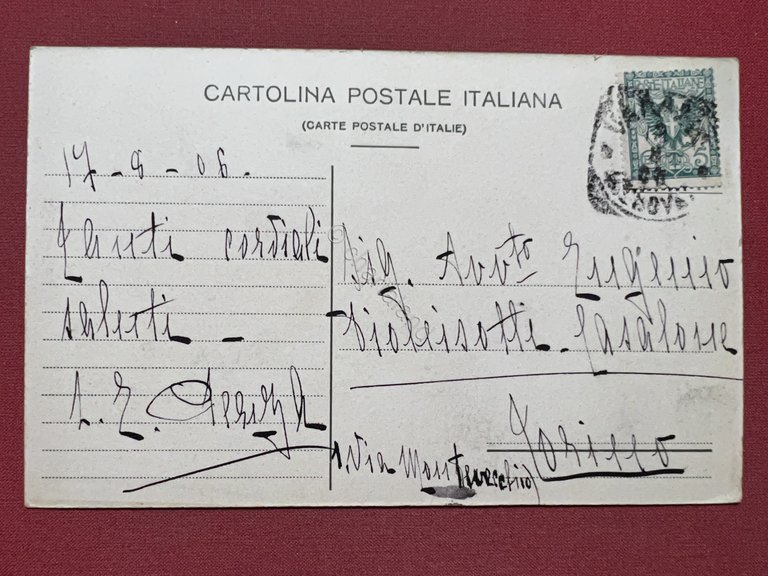 CARTOLINA POSTALE ITALIANA
(CARTE POSTALE D'ITALIE)
POSTE ITALIANE
5
17 - 8 - 06 -
Tanti cordiali
saluti -
Sig. Avvto Eugenio
Casalone
Torino
Via Montevecchio